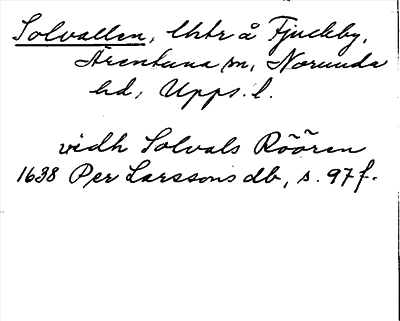 Solvallen, Urtr å Fjuckby,
Ärentuna sn, Norunda
hd, Upps. l.
vidh Solvals Röören
1638 Per Larssons db, s. 97 f.